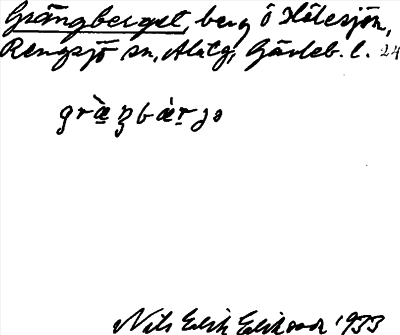 Grängberget, berg ö Hölesjön,
Rengsjö sn, Alftg, Gävleb. l. 24
grä̀ŋbǽrjə
Nils Erik Eriksson 1933